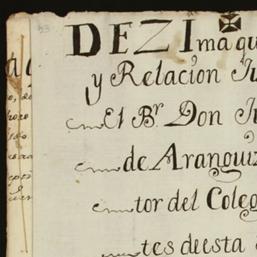 DEZIma qu
y Relacion Ju
El Br. Don Ju
de Aranguiz
tor del Coleg
tes de esta